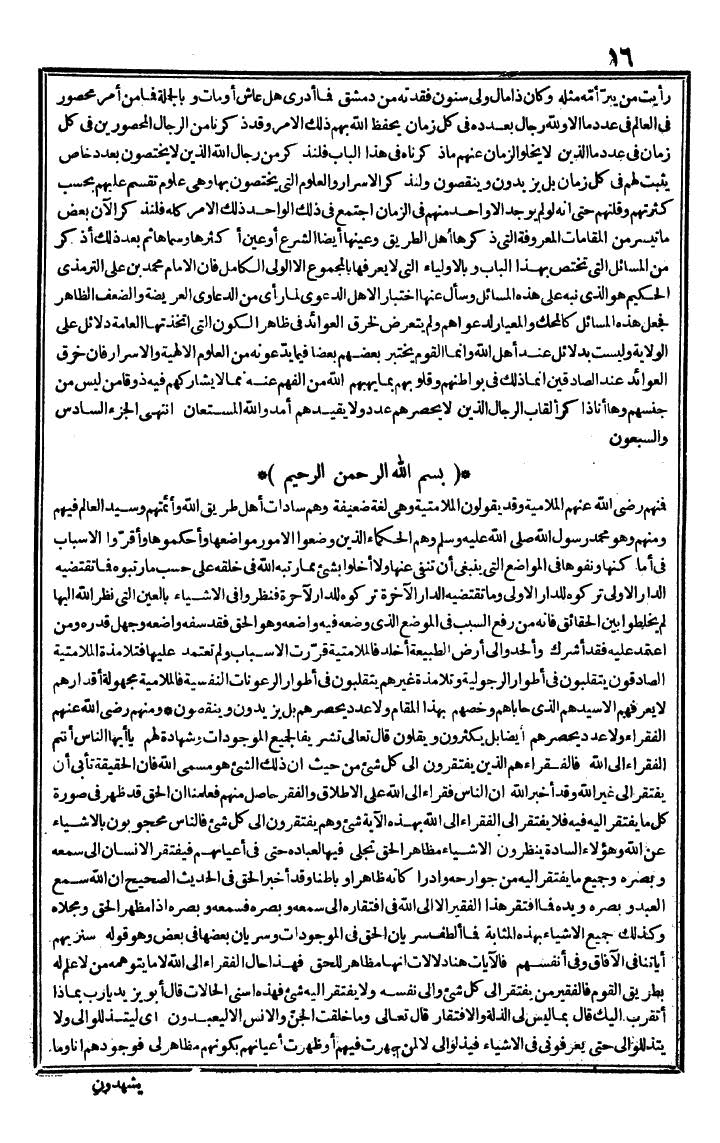 ١٦
رأيت من يبرّ أمّه مثله وكان ذا مال ولى سنون فقدته من دمشق فما أدرى هل عاش أو مات وبالجملة فما من أمر محصور
فى العالم فى عدد ما الا ولله رجال بعدده فى كل زمان يحفظ الله بهم ذلك الامر وقد ذكرنا من الرجال المحصورين فى كل
زمان فى عدد ما الذين لا يخلو الزمان عنهم ما ذكرناه فى هذا الباب فلنذكر من رجال الله الذين لا يختصون بعدد خاص
يثبت لهم فى كل زمان بل يزيدون وينقصون ولنذكر الاسرار والعلوم التى يختصون بها وهى علوم تقسم عليهم بحسب
كثرتهم وقلتهم حتى انه لو لم يوجد الا واحد منهم فى الزمان اجتمع فى ذلك الواحد ذلك الامر كله فلنذكر الآن بعض
ما تيسر من المقامات المعروفة التى ذكرها أهل الطريق وعينها أيضا الشرع أو عين أكثرها وسماها ثم بعد ذلك أذكر
من المسائل التى تختص بهذا الباب وبالاولياء التى لا يعرفها بالمجموع الا الولى الكامل فان الامام محمد بن على الترمذى
الحكيم هو الذى نبه على هذه المسائل وسأل عنها اختبارا لاهل الدعوى لما رأى من الدعاوى العريضة والضعف الظاهر
فجعل هذه المسائل كالمحك والمعيار لدعواهم ولم يتعرض لخرق العوائد فى ظاهر الكون التى اتخذتها العامة دلائل على
الولاية وليست بدلائل عند أهل الله وانما القوم يختبر بعضهم بعضا فيما يدّعونه من العلوم الالهية والاسرار فان خرق
العوائد عند الصادقين انما ذلك فى بواطنهم وقلوبهم بما يهبهم الله من الفهم عنه مما لا يشاركهم فيه ذوقا من ليس من
جنسهم وها أنا ذا كر ألقاب الرجال الذين لا يحصرهم عدد ولا يقيدهم أمد والله المستعان انتهى الجزء السادس
والسبعون
*( بسم الله الرحمن الرحيم )*
فمنهم رضى الله عنهم الملامية وقد يقولون الملامتية وهى لغة ضعيفة وهم سادات أهل طريق الله وأئمتهم وسيد العالم فيهم
ومنهم وهو محمد رسول الله صلى الله عليه وسلم وهم الحكماء الذين وضعوا الامور مواضعها وأحكموها وأقرّوا الاسباب
فى أماكنها ونفوها فى المواضع التى ينبغى أن تنتفى عنها ولا أخلوا بشئ مما رتبه الله فى خلقه على حسب ما رتبوه فما تقتضيه
الدار الاولى تركوه للدار الاولى وما تقتضيه الدار الآخرة تركوه للدار الآخرة فنظروا فى الاشياء بالعين التى نظر الله اليها
لم يخلطوا بين الحقائق فانه من رفع السبب فى الموضع الذى وضعه فيه واضعه وهو الحق فقد سفه واضعه وجهل قدره ومن
اعتمد عليه فقد أشرك وألحد والى أرض الطبيعة أخلد فالملامتية قرّرت الاسباب ولم تعتمد عليها فتلامذة الملامتية
الصادقون يتقلبون فى أطوار الرجولية وتلامذة غيرهم يتقلبون فى أطوار الرعونات النفسية فالملامية مجهولة أقدارهم
لا يعرفهم الا سيدهم الذى حاباهم وخصهم بهذا المقام ولا عدد يحصرهم بل يزيدون وينقصون * ومنهم رضى الله عنهم
الفقراء ولا عدد يحصرهم أيضا بل يكثرون ويقلون قال تعالى تشريفا لجميع الموجودات وشهادة لهم يا أيها الناس أنتم
الفقراء الى الله فالفقراء هم الذين يفتقرون الى كل شئ من حيث ان ذلك الشئ هو مسمى الله فان الحقيقة تأبى أن
يفتقر الى غير الله وقد أخبر الله ان الناس فقراء الى الله على الاطلاق والفقر حاصل منهم فعلمنا ان الحق قد ظهر فى صورة
كل ما يفتقر اليه فيه فلا يفتقر الى الفقراء الى الله بهذه الآية شئ وهم يفتقرون الى كل شئ فالناس محجوبون بالاشياء
عن الله وهؤلاء السادة ينظرون الاشياء مظاهر الحق تجلى فيها لعباده حتى فى أعيانهم فيفتقر الانسان الى سمعه
وبصره وجميع ما يفتقر اليه من جوارحه وادراكاته ظاهرا وباطنا وقد أخبر الحق فى الحديث الصحيح ان الله سمع
العبد وبصره ويده فما افتقر هذا الفقير الا الى الله فى افتقاره الى سمعه وبصره فسمعه وبصره اذا مظهر الحق ومجلاه
وكذلك جميع الاشياء بهذه المثابة فما ألطف سريان الحق فى الموجودات وسريان بعضها فى بعض وهو قوله سنريهم
آياتنا فى الآفاق وفى أنفسهم فالآيات هنا دلالات انها مظاهر للحق فهذا حال الفقراء الى الله لا ما يتوهمه من لا علم له
بطريق القوم فالفقير من يفتقر الى كل شئ والى نفسه ولا يفتقر اليه شئ فهذه اسنى الحالات قال أبو يزيد يا رب بماذا
أتقرب اليك قال بما ليس لى الذلة والافتقار قال تعالى وما خلقت الجنّ والانس الا ليعبدون اى ليتذللوا لى ولا
يتذللوا لى حتى يعرفونى فى الاشياء فيذلوا لى لا لمن ظهرت فيهم أو ظهرت أعيانهم بكونهم مظاهر لى فوجودهم انا وما
يشهدون